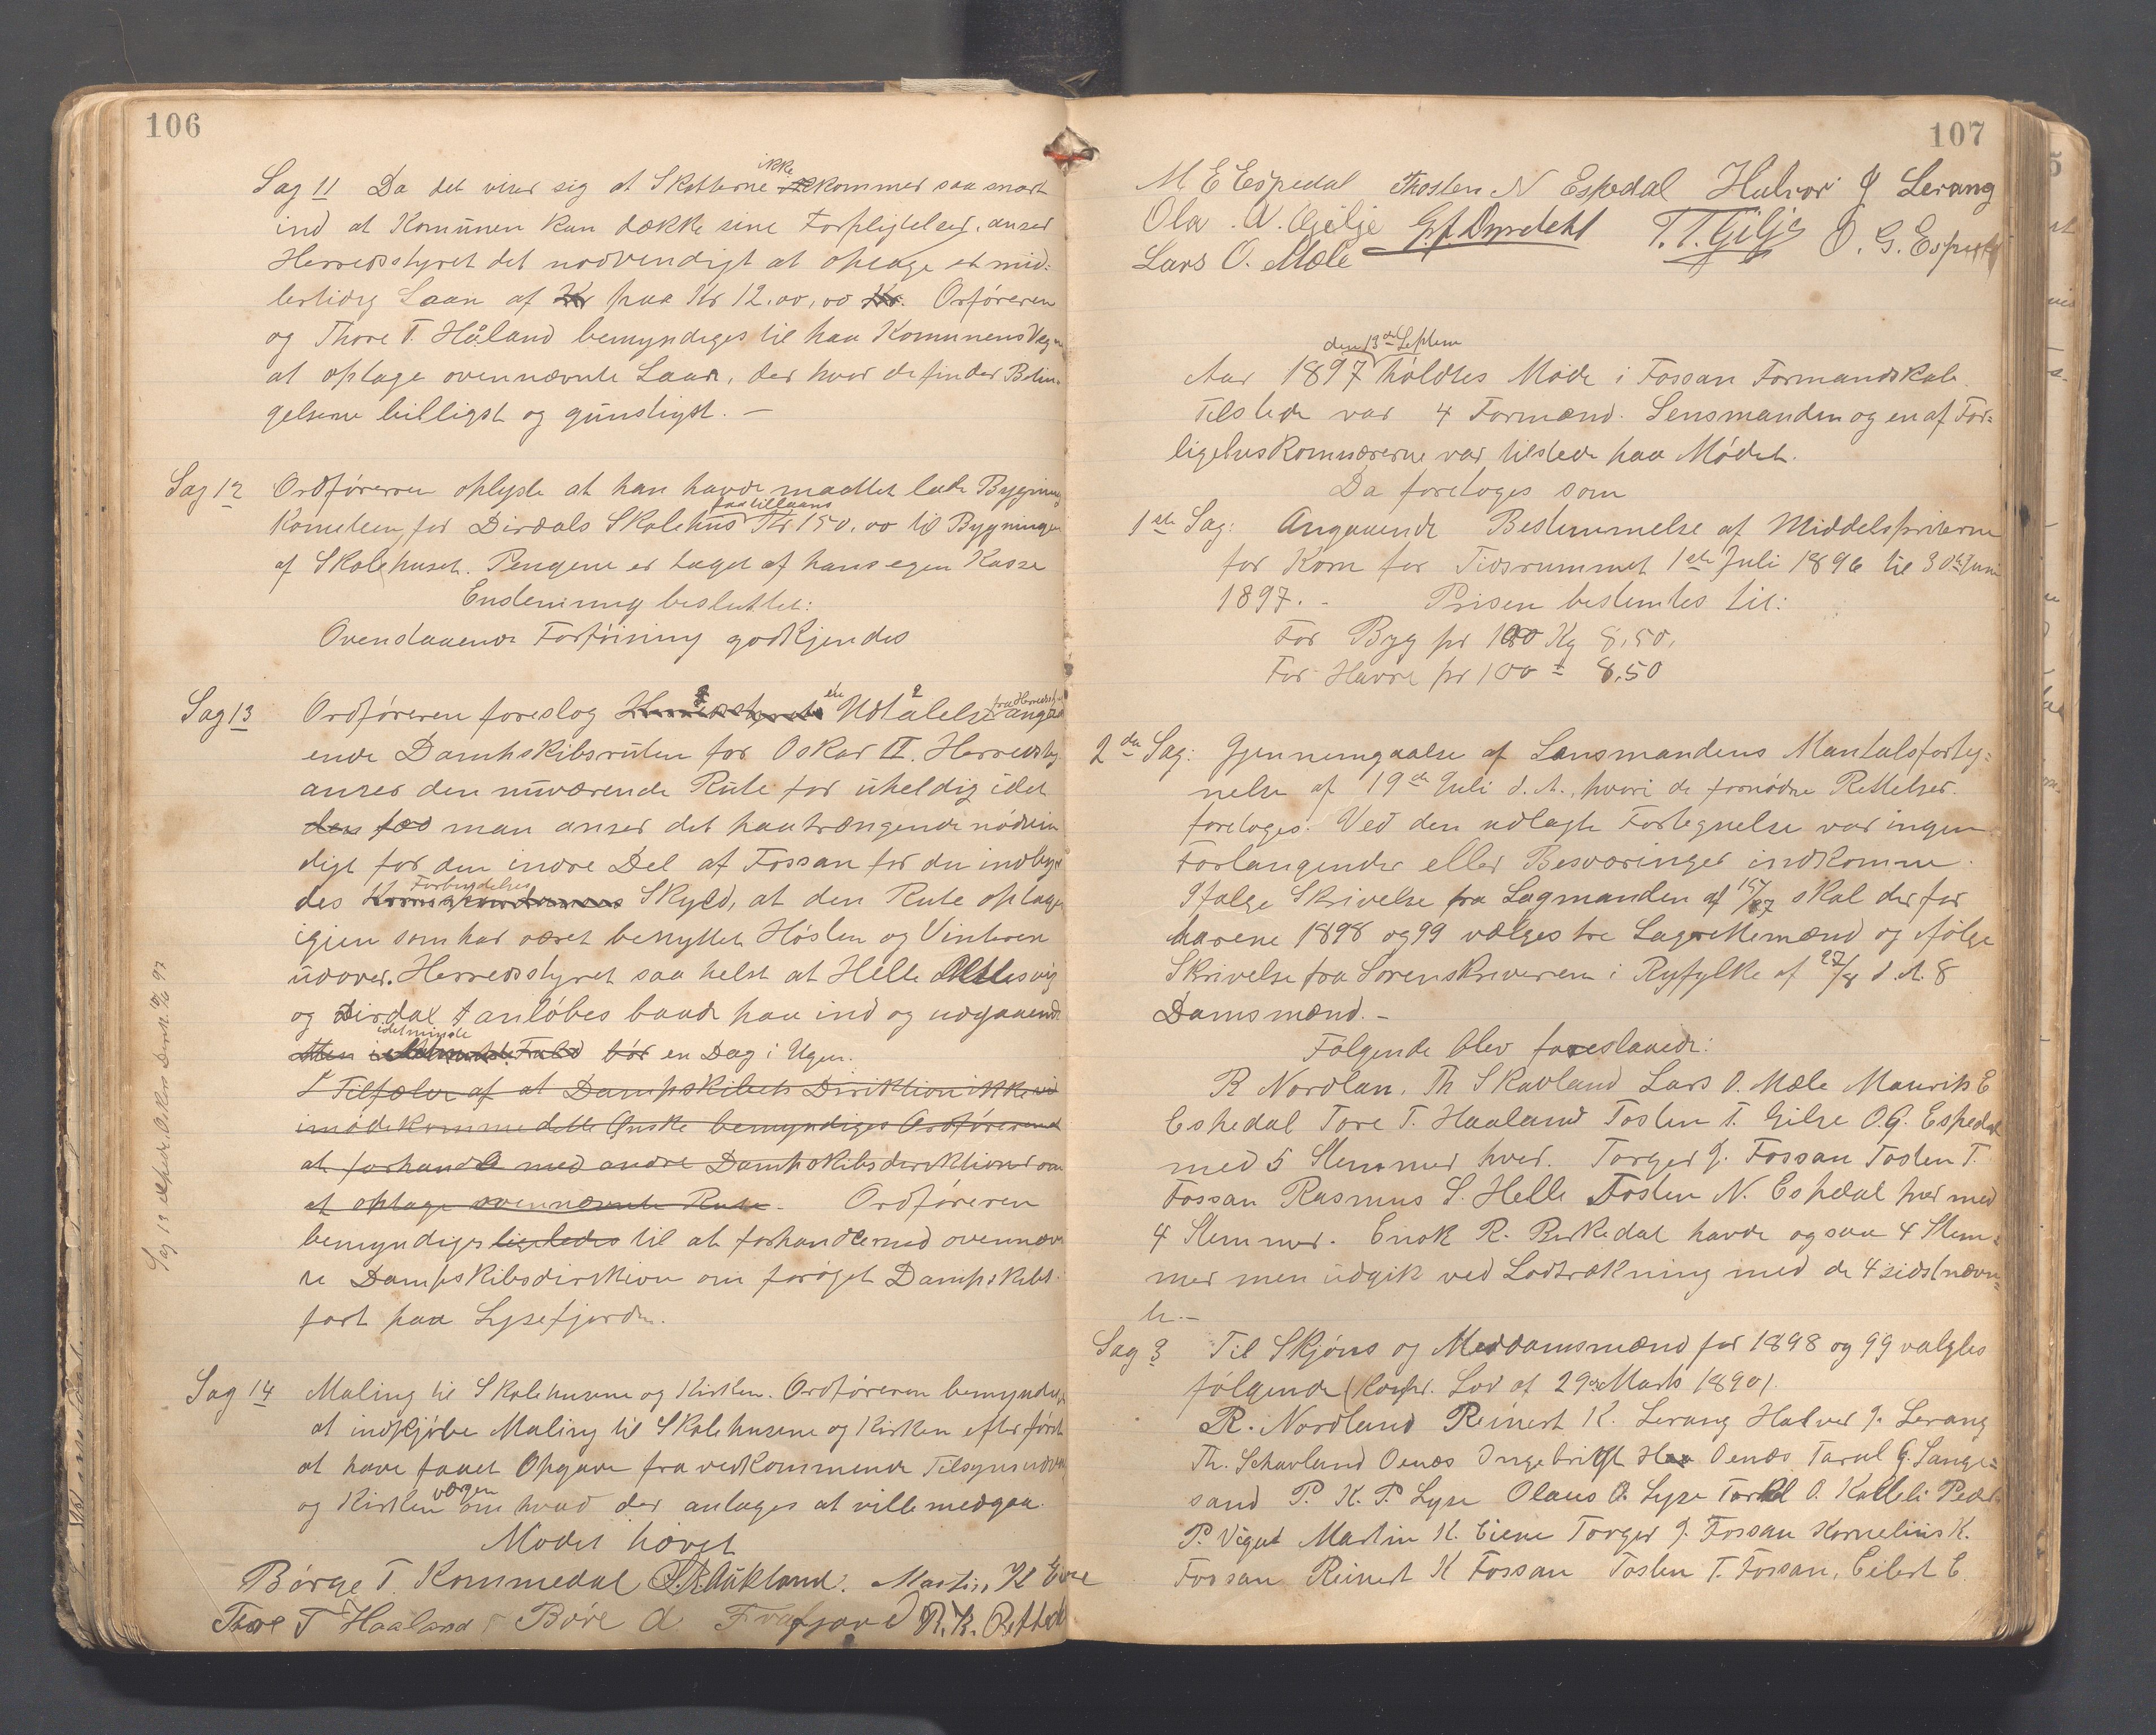 106
Sag 11 Da det viser sig at Skatterne ikke kommer saa snart
ind at Komunen kan dække sine Forpligtelser, anser
Herredsstyret det nødvendigt at optage et mid-
lertidig Laan af Kr paa Kr 12.00,00 Kr. Orføreren
og Thore T. Håland bemyndiges til paa Komunens Vegne
at optage ovennævnte Laan, der hvor de finder Betin-
gelserne billigst og gunstigst. —
Sag 12 Ordføreren oplyste at han havde maattet lade Bygnings
Komiteen for Dirdals Skolehus faa tillaans Kr 150.00 til Bygningen
af Skolehuset. Pengene er taget af hans egen Kasse
Enstemmig besluttet:
Ovenstaaende Forføining godkjendes
Sag 13 Ordføreren foreslog Herredsstyrets en Udtalelse fra Herredsst. anga-
ende Dampskibsruten for Oskar II. Herredsty
anser den nuværende Rute for uheldig idet
den fæd man anser det paatrængende nødven
digt for den indre Del af Fossan for du indbyr-
des Forbindelses Skyld, at den Rute optages
igjen som har været benyttet Høsten og Vinteren
udover. Herredsstyret saa helst at Helle Meltesvig
og Dirdal anløbes baade paa ind og udgaaende
Men idetmindste Fald bør en Dag i Ugen.
I Tilfælde af at Dampskibets Direktion ikke vil
imødekomme dette Ønske bemyndiges Ordføreren
at forhandle med andre Dampskibsdirektioner om
at optage ovennævnte Rute. Ordføreren
bemyndiges ligeledes til at forhandle med ovennævn
te Dampskibsdirektion om forøget Dampskibs-
fart paa Lysefjorden.
Sag 14 Maling til Skolehusene og Kirken. Ordføreren bemyndiges
at indkjøbe Maling til Skolehusene og Kirken efter først
at have faaet Opgave fra vedkommende Tilsynsudvalg
og Kirkeværgen om hvad der antages at ville medgaa.
Mødet hævet
Børge T. Kommedal S.R. Aukland. Martin K Eiene
Thore T Haaland Bore A. Frafjord R.K.
107
M E Espedal Thosten N Espedal Halvor J Lerang
Ola A. Gjilje T. T. Gilje O. G. Espedal
Lars O. Mæle
den 13de Septem
Aar 1897 holdtes Møde i Fossan Formandskab.
Tilstede var 4 Formænd. Lensmanden og en af For-
ligelseskomisærerne var tilstede paa Mødet.
Da foretoges som
1ste Sag: Angaaende Bestemmelse af Middelspriserne
for Korn for Tidsrummet 1ste Juli 1896 til 30te Juni
1897. - Prisen bestemtes til:
For Byg pr 100 Kg 8,50,
For Havre pr 100 " 8,50
2den Sag: Gjennemgaaelse af Lensmandens Mantalsforteg-
nelse af 19de Juli d. A., hvori de fornødne Rettelser
foretoges. Ved den udlagte Fortegnelse var ingen
Forlangender eller Besværinger indkomne.
Ifølge Skrivelse fra Lagmanden af 15/7 97 skal der for
Aarene 1898 og 99 vælges tre Lagrettemænd og ifølge
Skrivelse fra Sorenskriveren i Ryfylke af 27/8 d. A. 8
Domsmænd. -
Følgende blev foreslaaede:
R Nordlan, Th Skavland Lars O. Mæle Maurits E
Espedal Tore T. Haaland Tosten T. Gilje O.G. Espedal
med 5 Stemmer hver. Torger J. Fossan Tosten T.
Fossan Rasmus S. Helle Tosten N. Espedal hver med
4 Stemmer. Enok R. Birkedal havde ogsaa 4 Stem-
mer men udgik ved Lodtrækning med de 4 sidstnævn-
te. -
Sag 3 Til Skjøns og Meddomsmænd for 1898 og 99 valgtes
følgende (Konfr. Lov af 29de Marts 1890).
R. Nordland Reinert K. Lerang Halvor J. Lerang
Th. Schavland Oenæs Ingebrigt Oenæs Taral G. Sange-
sand P. K. P. Lyse Olaus O. Lyse Torkel O. Kalleli Peder
P. Vignt Martin K. Eiene Torger J. Fossan Kornelius K.
Fossan Reinert K Fossan Tosten T. Fossan, Eilert E.